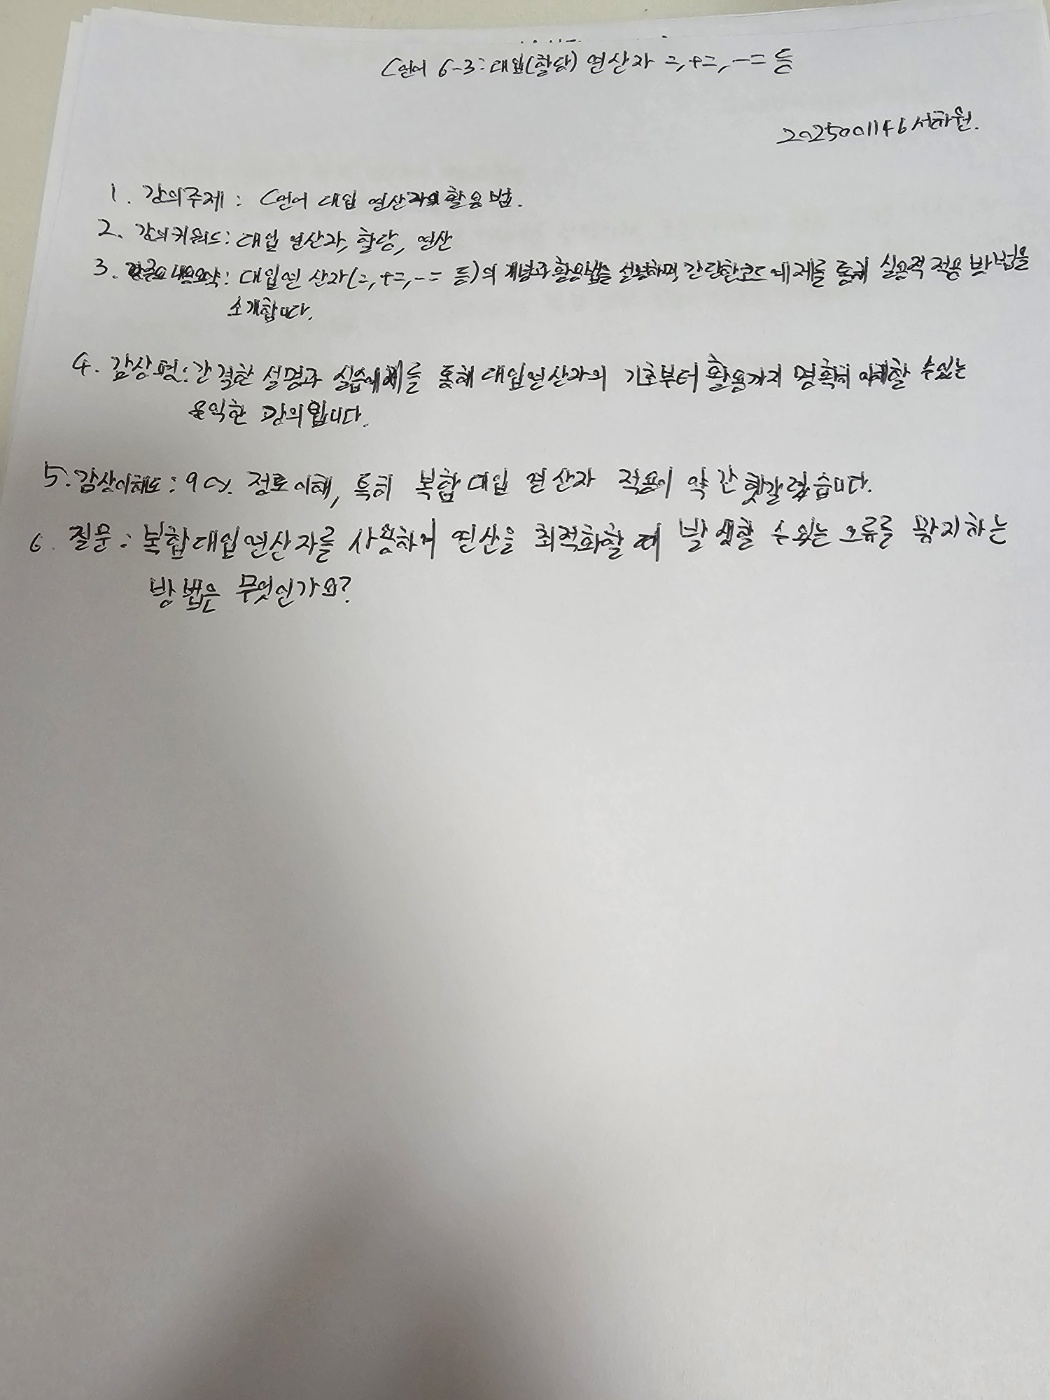 C언어 6-3: 대입(할당) 연산자 =, +=, -= 등
2025001146 서하원.
1. 강의주제 : C언어 대입 연산자의 활용법.
2. 강의키워드: 대입 연산자, 할당, 연산
3. 내용요약: 대입연산자(=, +=, -= 등)의 개념과 활용법을 설명하며, 간단한 코드 예제를 통해 실용적 적용 방법을
소개합니다.
4. 감상평: 간결한 설명과 실습예제를 통해 대입연산자의 기초부터 활용까지 명확히 이해할 수있는
유익한 강의입니다.
5. 감상이해도: 90% 정도이해, 특히 복합 대입 연산자 적용이 약간 헷갈렸습니다.
6. 질문 : 복합대입연산자를 사용하여 연산을 최적화할 때 발생할 수있는 오류를 방지하는
방법은 무엇인가요?